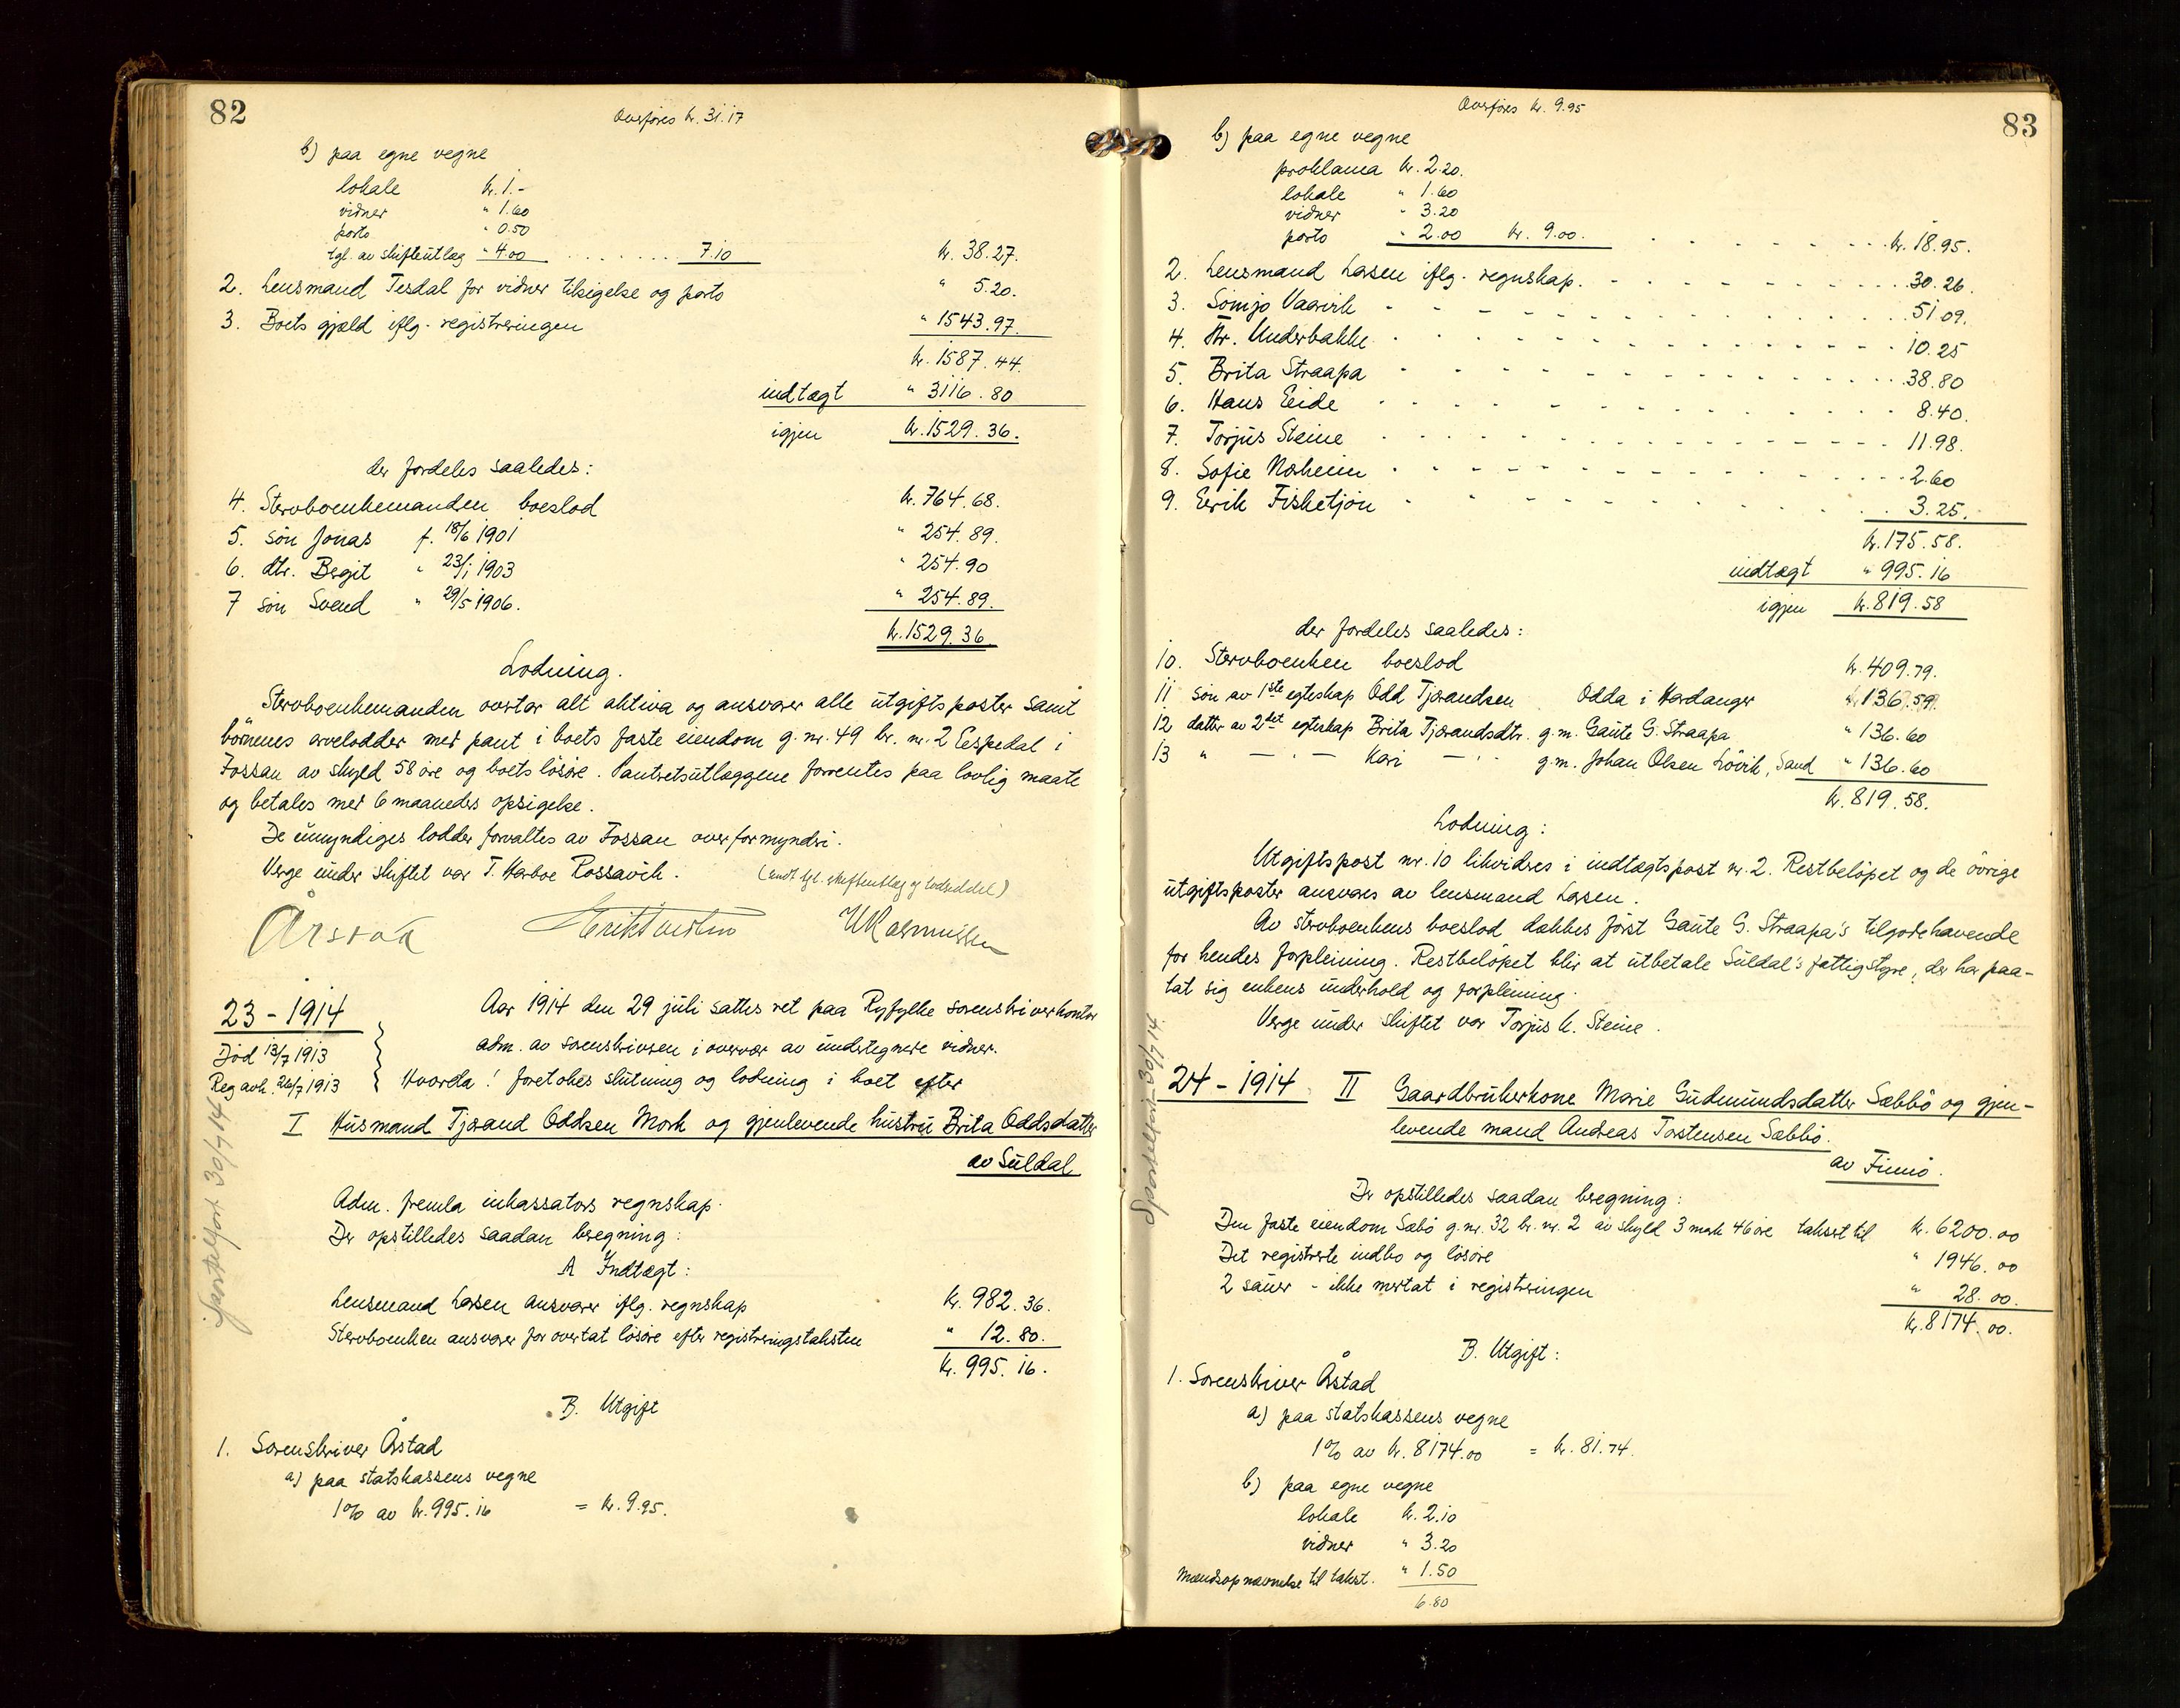 82
Overføres kr. 31.17
b) paa egne vegne
lokale kr. 1.-
vidner " 1.60
porto " 0.50
tgl. av skifteutlæg " 4.00 . . . . . . . 7.10 kr. 38.27.
2. Lensmand Tesdal for vidner tilsigelse og porto " 5.20.
3. Boets gjæld iflg. registreringen " 1543.97.
kr. 1587.44.
indtægt " 3116.80
igjen kr. 1529.36.
der fordeles saaledes:
4. Stervboenkemanden boeslod kr. 764.68.
5. søn Jonas f. 18/6 1901 " 254.89.
6. dtr. Begit " 23/1 1903 " 254.90
7 søn Svend " 29/5 1906. " 254.89.
kr. 1529.36
Lodning.
Stervboenkemanden overtar alt aktiva og ansvarer alle utgiftsposter samt
børnenes arvelodder med pant i boets faste eiendom g.nr. 49 br. nr. 2 Eespedal i
Fossan av skyld 58 øre og boets løsøre. Pantretsutlæggene forrentes paa lovlig maate
og betales med 6 maaneders opsigelse.
De umyndiges lodder forvaltes av Fossan overformynderi.
Verge under skiftet var T. Harboe Rossavik. (undt. tgl. skifteutlæg og lodseddel)
23 - 1914
Aar 1914 den 29 juli sattes ret paa Ryfylke sorenskriverkontor
Død 13/7 1913
adm. av sorenskriveren i overvær av undertegnede vidner.
Reg avh. 26/7 1913
Hvorda! foretokes slutning og lodning i boet efter
I Husmand Tjærand Oddsen Mork og gjenlevende hustru Brita Oddsdatter
av Suldal
Adm. fremla inkassators regnskap.
Der opstilledes saadan beregning:
A Indtægt:
Lensmand Larsen ansvarer iflg. regnskap kr. 982.36.
Stervboenken ansvarer for overtat løsøre efter registreringstaksten " 12.80.
kr. 995.16.
B. Utgift
1. Sorenskriver Årstad
a) paa statskassens vegne
1% av kr. 995.16 = kr. 9.95.
83
Overføres kr. 9.95
b) paa egne vegne
proklama kr. 2.20.
lokale " 1.60
vidner " 3.20
porto " 2.00 kr. 9.00. . . . . . . . kr. 18.95.
2. Lensmand Larsen iflg. regnskap. . . . . . . 30.26.
3. Sømjo Vaarvik . . . . . . 51.09.
4. Kr. Underbakke . . . . . . 10.25
5. Brita Straapa . . . . . . 38.80
6. Hans Eide . . . . . . 8.40.
7. Torjus Steine . . . . . . 11.98.
8. Sofie Næsheim . . . . . . 2.60
9. Eerik Fisketjøn . . . . . . 3.25.
kr. 175.58.
indtægt " 995.16
igjen kr. 819.58
der fordeles saaledes:
10. Stervboenken boeslod kr. 409.79.
11 søn av 1ste egteskap Odd Tjærandsen Odda i Hardanger kr. 136.59.
12 datter av 2det egteskap Brita Tjærandsdtr. g.m. Gaute G. Straapa " 136.60
13 " — " — Kari — " — g.m. Johan Olsen Løvik, Sand " 136.60
kr. 819.58.
Lodning:
Utgiftspost nr. 10 likvideres i indtægtspost nr. 2. Restbeløpet og de øvrige
utgiftsposter ansvares av lensmand Larsen.
Av stervboenkens boeslod dækkes først Gaute G. Straapa's tilgodehavende
for hendes forpleining. Restbeløpet blir at utbetale Suldal's fattigstyre, der har paa-
tat sig enkens underhold og forpleining.
Verge under skiftet var Torjus K. Steine.
24 - 1914 II Gaardbrukerkone Marie Gudmundsdatter Sæbbø og gjen-
levende mand Andreas Torstensen Sæbbø.
av Finnø.
Der opstilledes saadan beregning:
Den faste eiendom Sæbø g.nr. 32 br. nr. 2 av skyld 3 mark 46 øre takseret til kr. 6200.00
Det registrerte indbo og løsøre " 1946.00
2 sauer - ikke medtat i registreringen " 28.00.
kr. 8174.00.
B. Utgift:
1. Sorenskriver Årstad
a) paa statskassens vegne
1% av kr. 8174.00 = kr. 81.74.
b) paa egne vegne
lokale kr. 2.10
vidner " 3.20
Mændsopnævnelse til takst. " 1.50
6.80